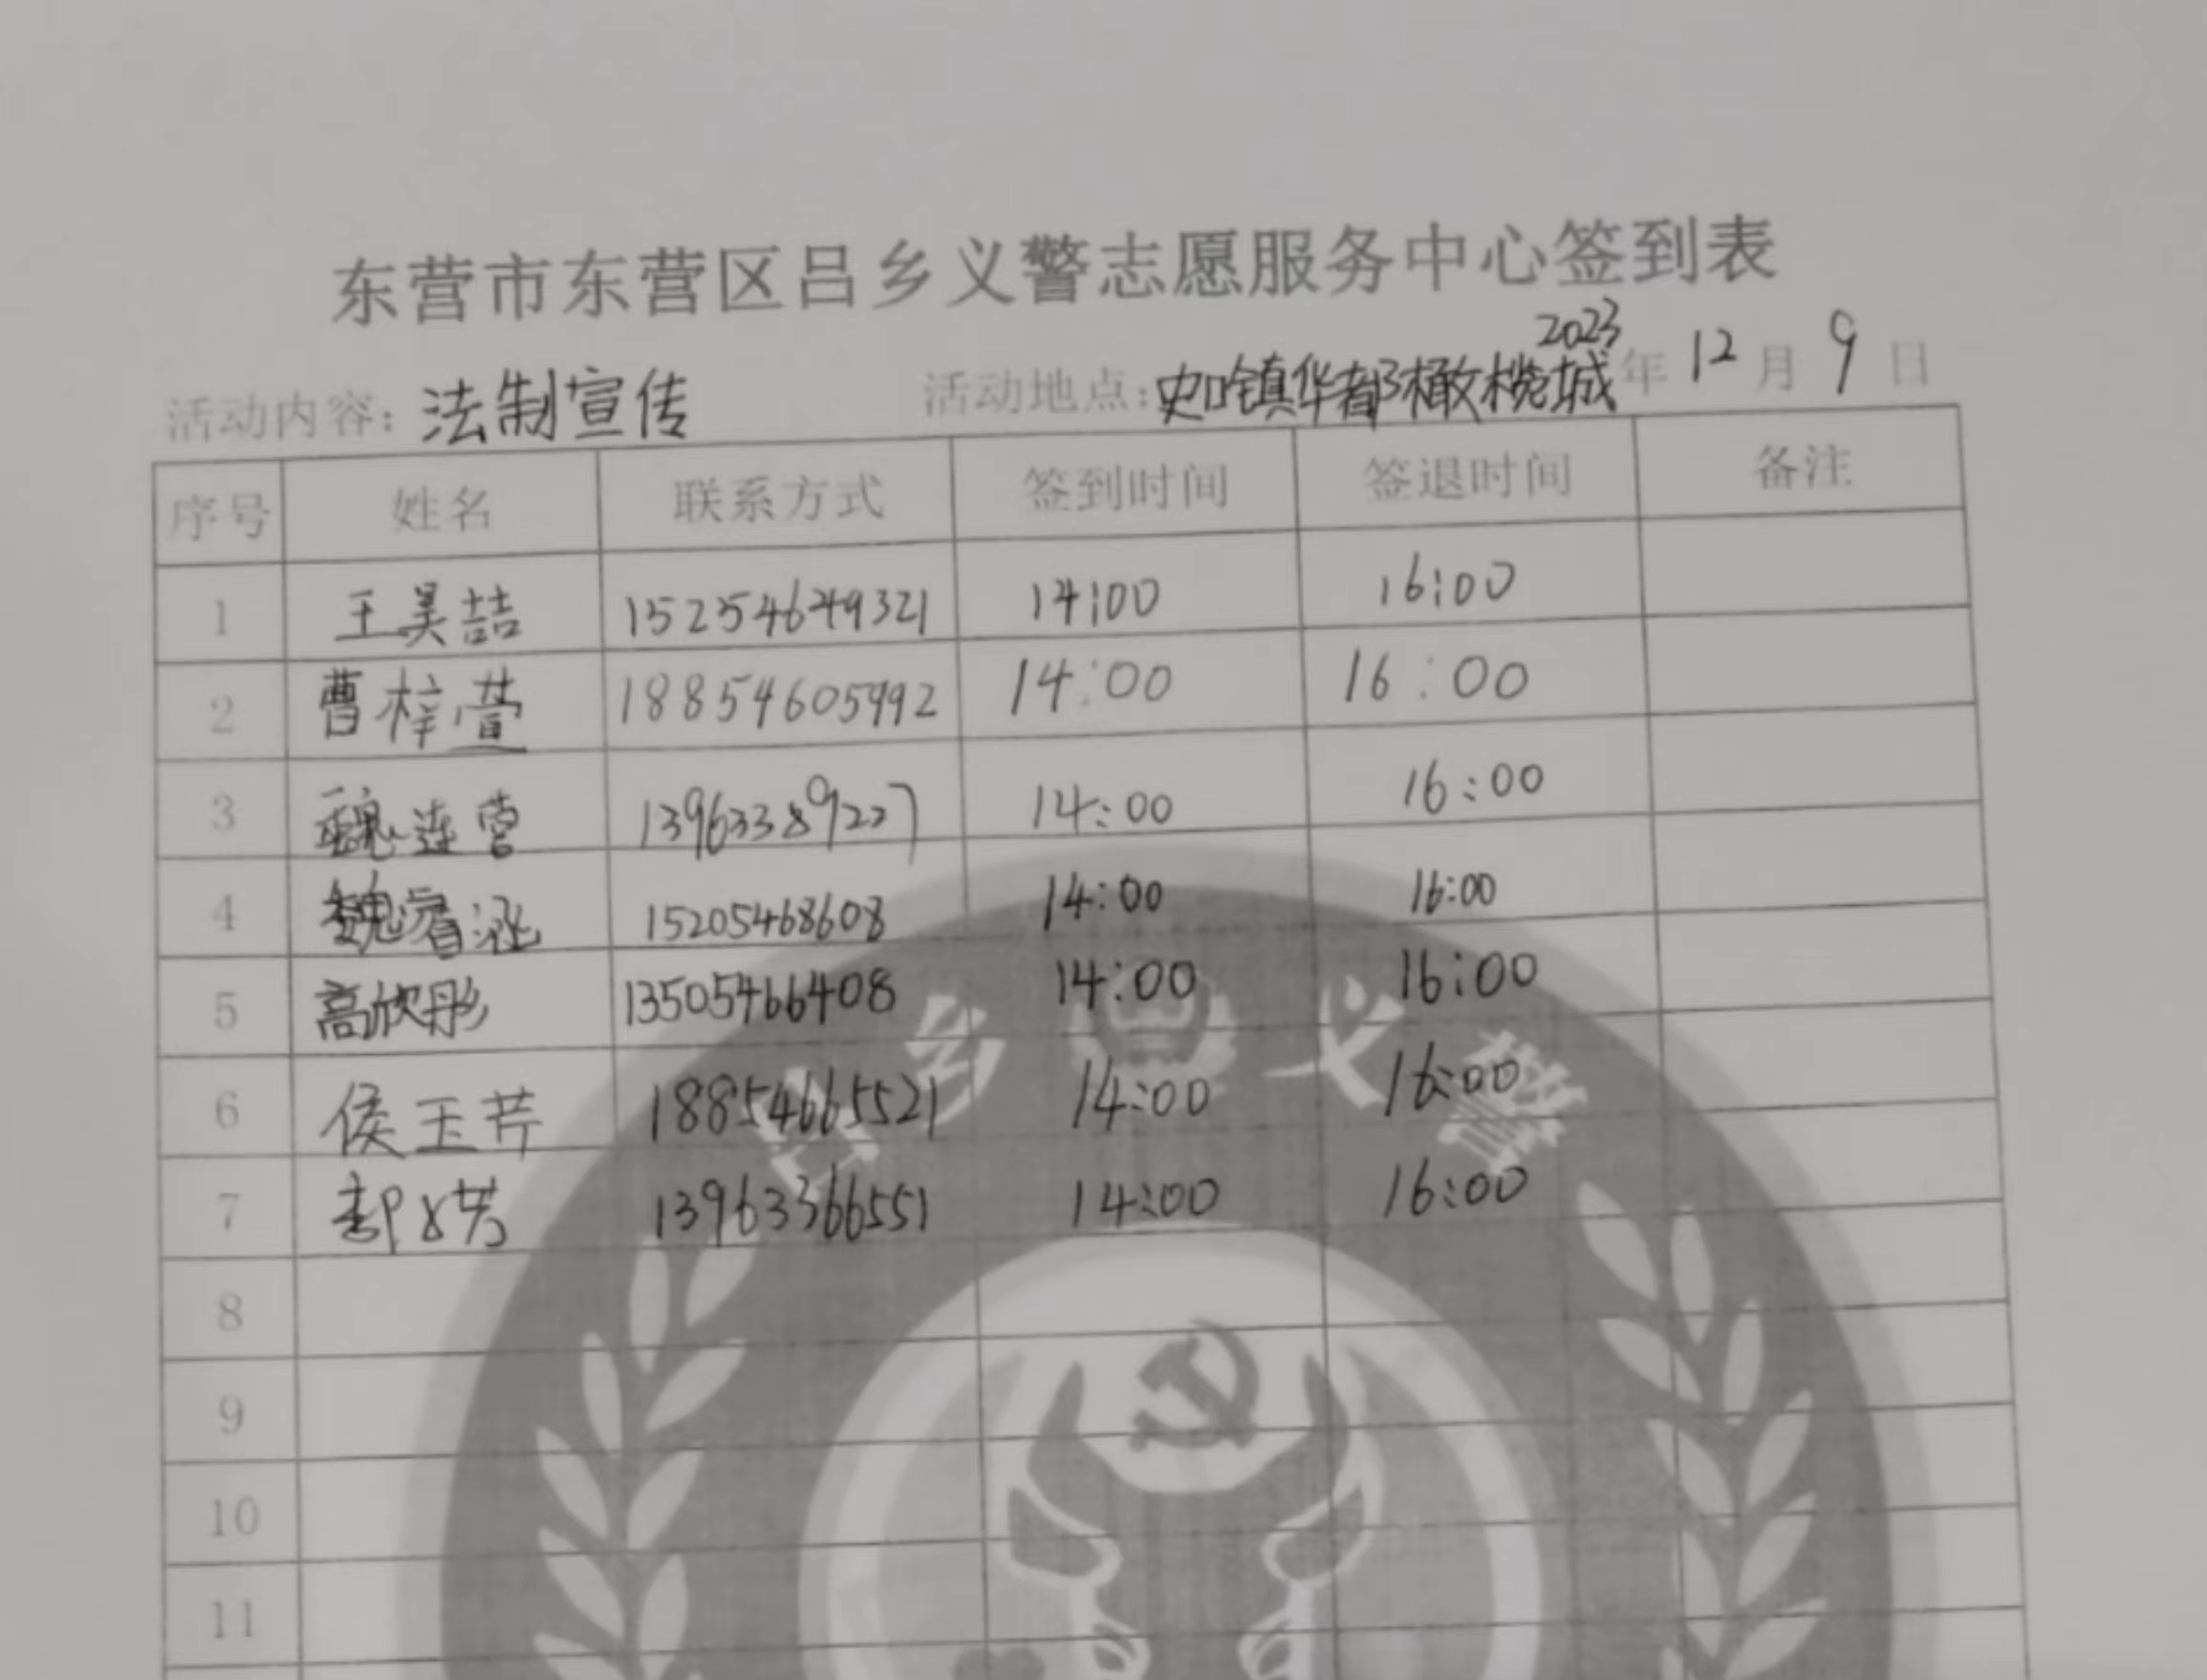 东营市东营区吕乡义警志愿服务中心签到表
活动内容：法制宣传 活动地点：史口镇华都橄榄城 2023年12月9日
序号 姓名 联系方式 签到时间 签退时间 备注
1 王昊喆 15254649321 14:00 16:00
2 曹梓萱 18854605992 14:00 16:00
3 魏连营 13963389227 14:00 16:00
4 魏睿涵 15205468608 14:00 16:00
5 高欣彤 13505466408 14:00 16:00
6 侯玉芹 18854665521 14:00 16:00
7 13963366551 14:00 16:00
8
9
10
11
吕乡义警